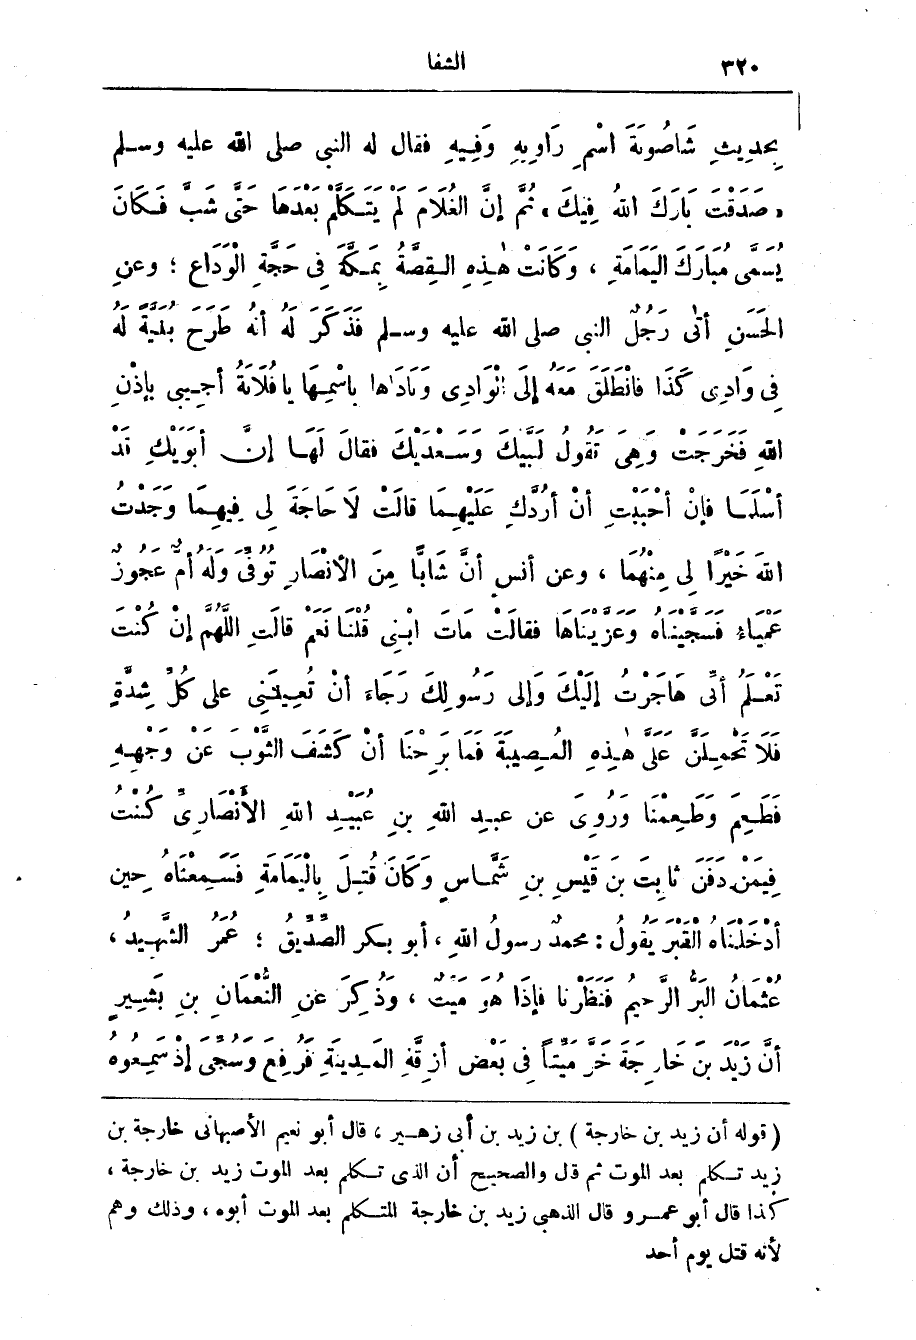 ٣٢٠
الشفا
بِحَدِيثِ شَاصُونَةَ اسْمِ رَاوِيهِ وَفِيهِ فقال له النبى صلى الله عليه وسلم
« صَدَقْتَ بَارَكَ اللهُ فِيكَ » ثُمَّ إنَّ الغُلَامَ لَمْ يَتَكَلَّمْ بَعْدَهَا حَتَّى شَبَّ فَكَانَ
يُسَمَّى مُبَارَكَ اليَمَامَةِ ، وَكَانَتْ هٰذِهِ القِصَّةُ بِمَكَّةَ فِى حَجَّةِ الْوَدَاعِ ؛ وعنِ
الحَسَنِ أتٰى رَجُلٌ النبى صلى الله عليه وسلم فَذَكَرَ لَهُ أنهُ طَرَحَ بُنَيَّةً لَهُ
فِى وَادِى كَذَا فَانْطَلَقَ مَعَهُ إِلَى الْوَادِى وَنَادَاها بِاسْمِهَا يا فُلَانَةُ أجِيبِى بإذْنِ
اللهِ فَخَرَجَتْ وَهِىَ تَقُولُ لَبَّيْكَ وَسَعْدَيْكَ فقالَ لَهَا إنَّ أبَوَيْكِ قَدْ
أسْلَمَا فإنْ أحْبَبْتِ أنْ أرُدَّكِ عَلَيْهِمَا قالَتْ لَا حَاجَةَ لِى فِيهِمَا وَجَدْتُ
اللهَ خَيْرًا لِى مِنْهُمَا ، وعن أنسٍ أنَّ شَابًّا مِنَ الأنْصَارِ تُوُفِّىَ وَلَهُ أُمٌّ عَجُوزٌ
عَمْيَاءُ فَسَجَّيْنَاهُ وَعَزَّيْنَاهَا فقالَتْ مَاتَ ابْنِى قُلْنَا نَعَمْ قالَتِ اللَّهُمَّ إنْ كُنْتَ
تَعْلَمُ أنِّى هَاجَرْتُ إلَيْكَ وَإلى رَسُولِكَ رَجَاءَ أنْ تُعِينَنِى على كُلِّ شِدَّةٍ
فَلَا تَحْمِلَنَّ عَلَىَّ هٰذِهِ المُصِيبَةَ فَمَا بَرِحْنَا أنْ كَشَفَ الثَّوْبَ عَنْ وَجْهِهِ
فَطَعِمَ وَطَعِمْنَا وَرُوِىَ عن عبدِ اللهِ بنِ عُبَيْدِ اللهِ الأنْصَارِىِّ كُنْتُ
فِيمَنْ دَفَنَ ثابِتَ بنَ قَيْسِ بنِ شَمَّاسٍ وَكَانَ قُتِلَ بِالْيَمَامَةِ فَسَمِعْنَاهُ حِينَ
أدْخَلْنَاهُ الْقَبْرَ يَقُولُ : محمدٌ رسولُ اللهِ ، أبو بكر الصِّدِّيقُ ؛ عُمَرُ الشَّهِيدُ ،
عُثْمَانُ البَرُّ الرَّحِيمُ فَنَظَرْنا فَإذَا هُوَ مَيِّتٌ ، وَذُكِرَ عَنِ النُّعْمَانِ بنِ بَشِيرٍ
أنَّ زَيْدَ بنَ خَارِجَةَ خَرَّ مَيِّتاً فِى بَعْضِ أزِقَّةِ المَدِينَةِ فَرُفِعَ وَسُجِّىَ إذْ سَمِعُوهُ
( قوله أن زيد بن خارجة ) بن زيد بن أبى زهير ، قال أبو نعيم الأصبهانى خارجة بن
زيد تكلم بعد الموت ثم قال والصحيح أن الذى تكلم بعد الموت زيد بن خارجة ،
كذا قال أبو عمرو قال الذهبى زيد بن خارجة المتكلم بعد الموت أبوه ، وذلك وهم
لأنه قتل يوم أحد